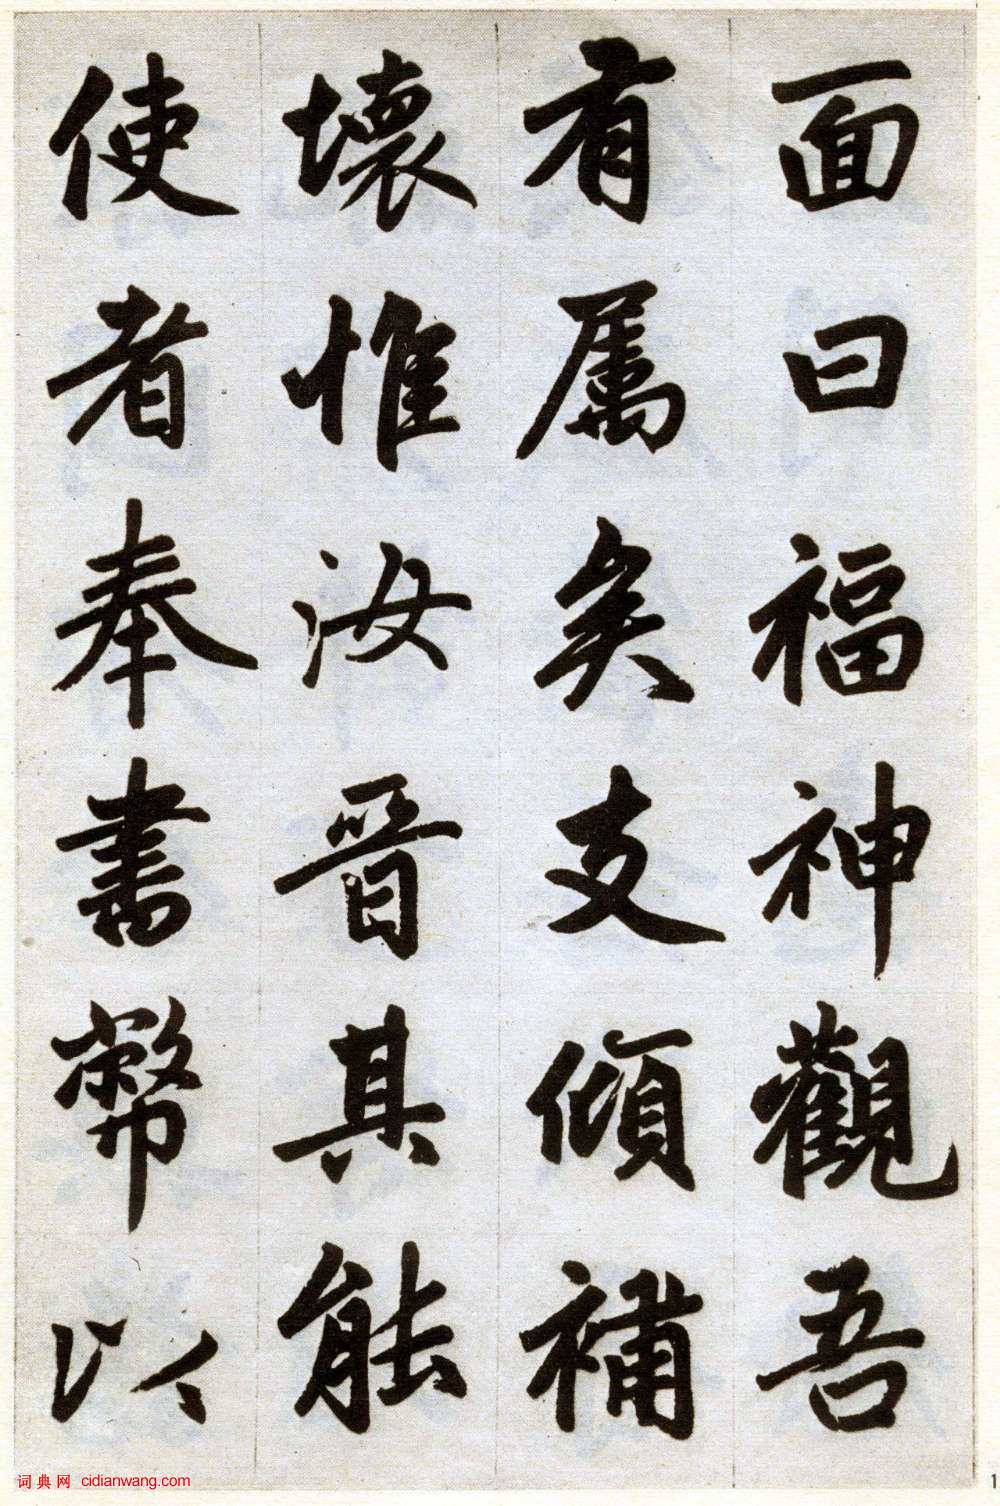 面曰福神觀吾
有属矣支傾補
壞惟汝晉其能
使者奉書幣以
词典网 cidianwang.com
1